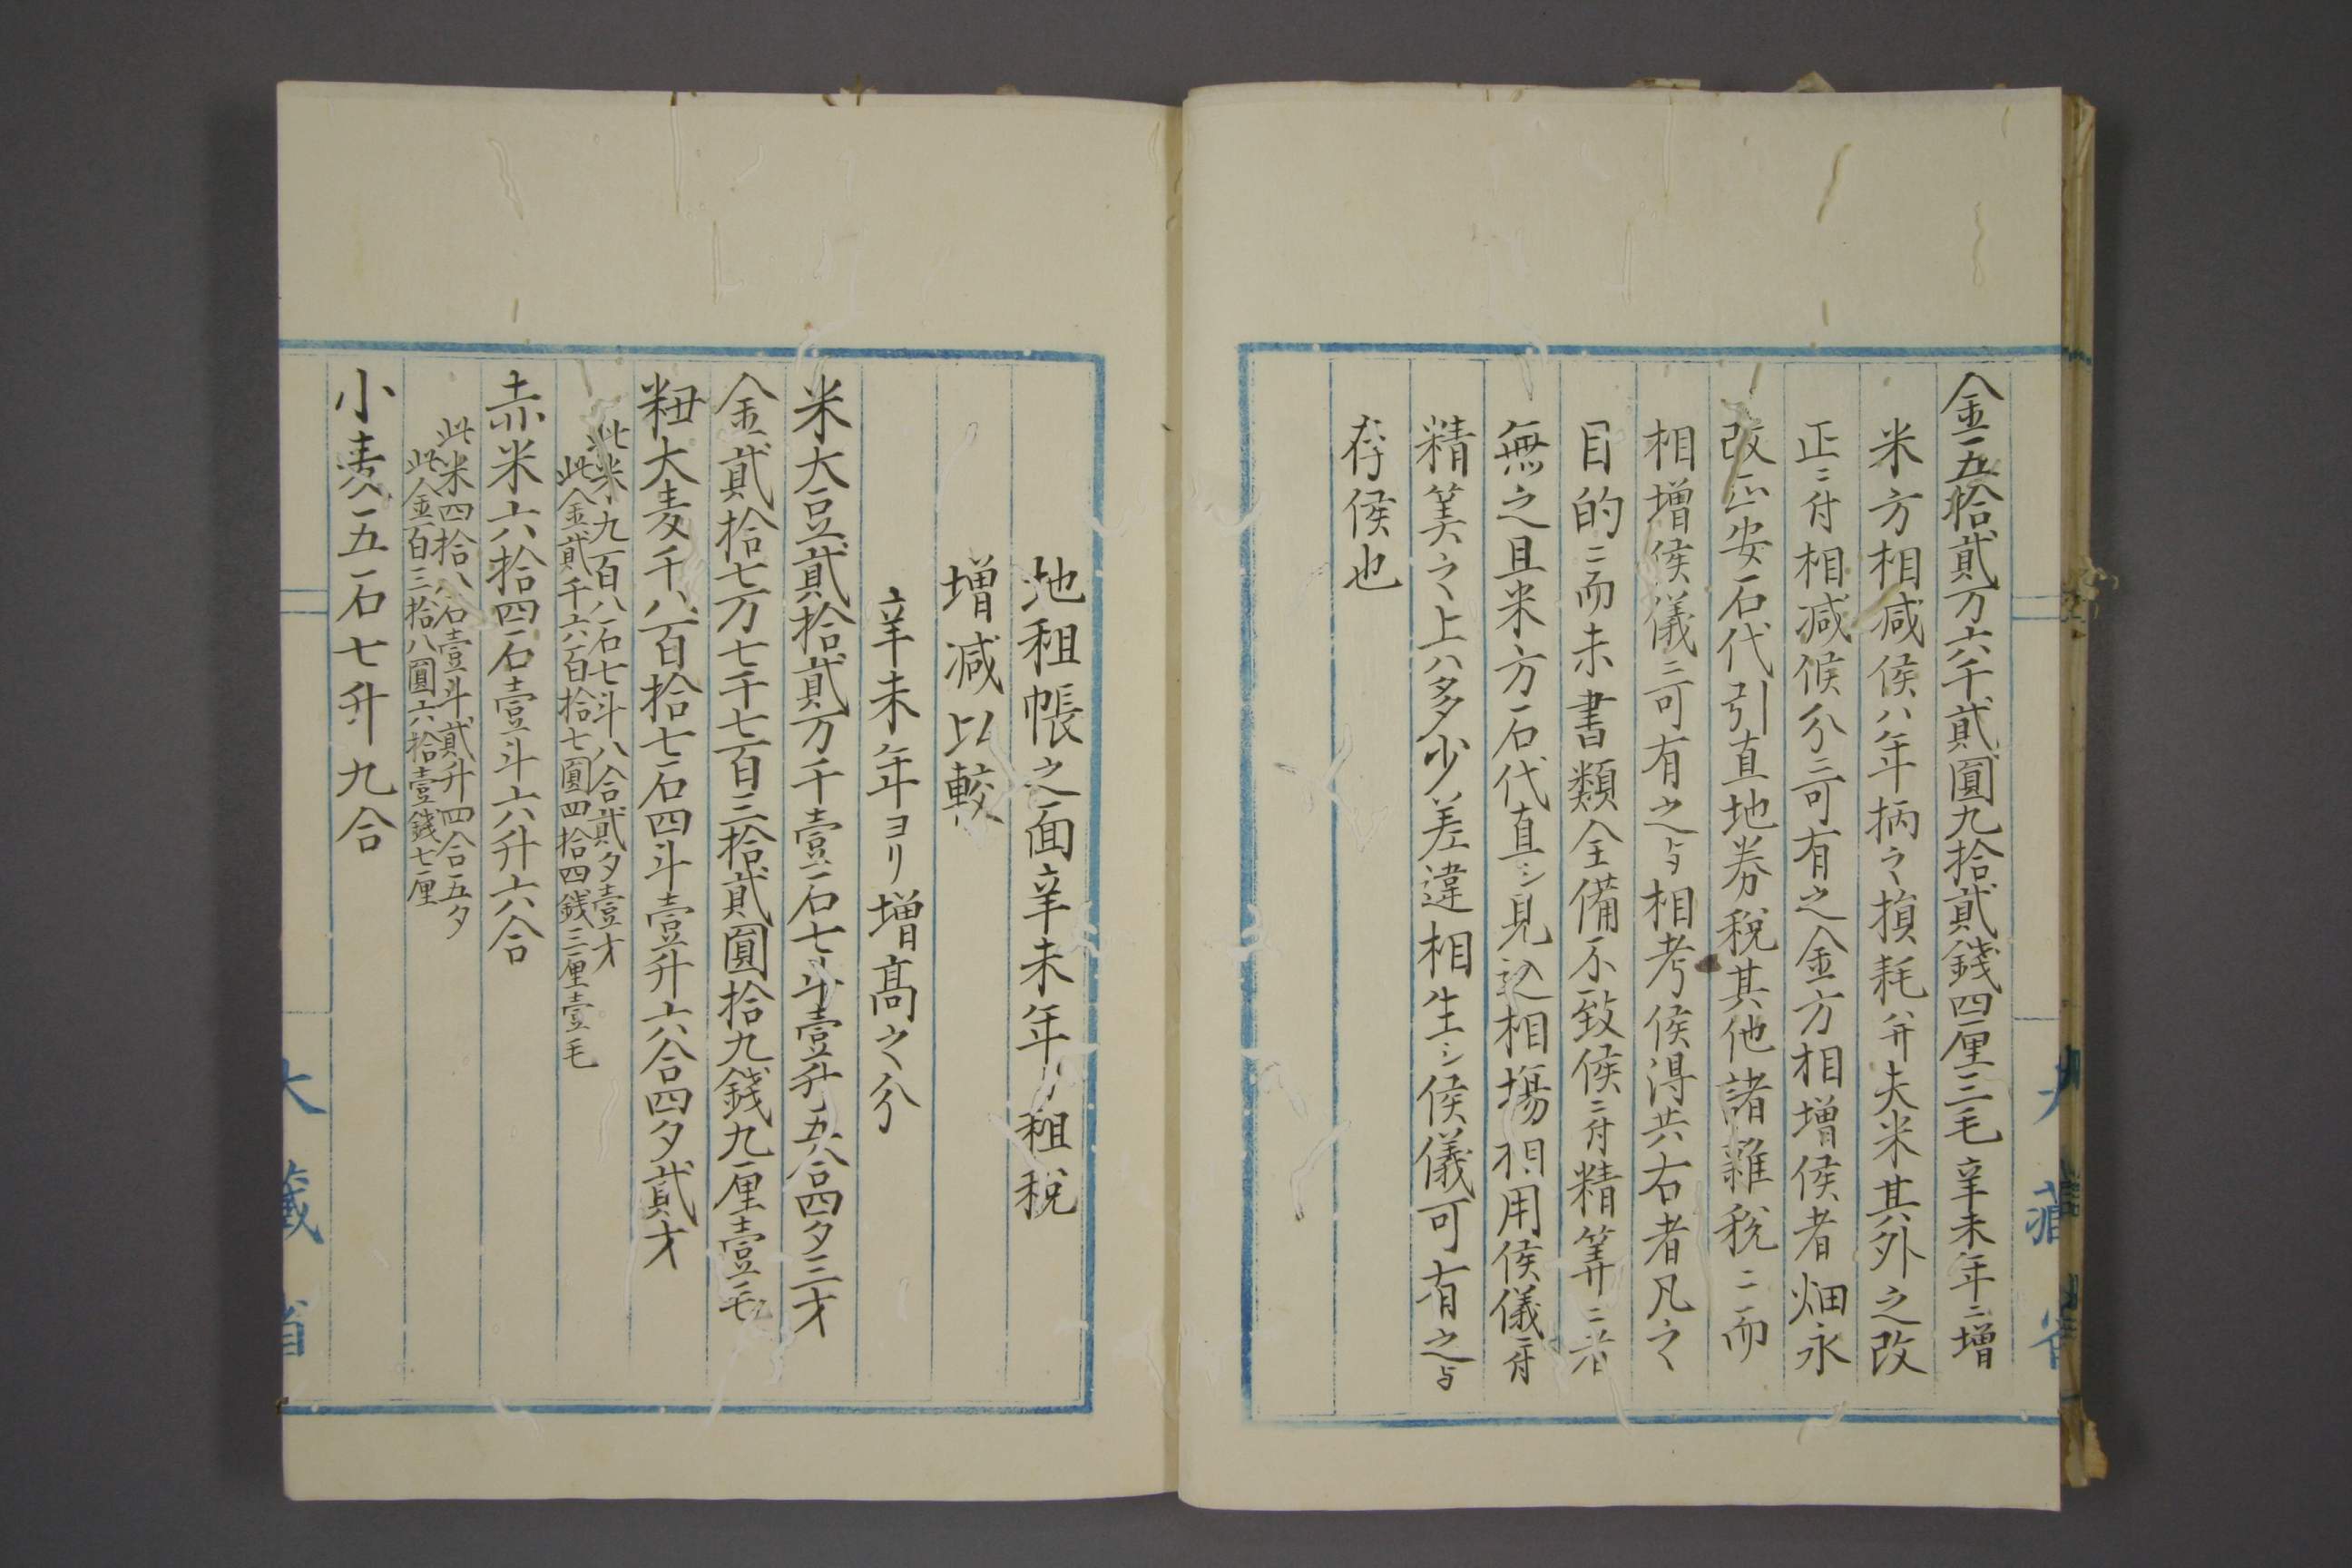 金五拾貳万六千貳圓九拾貳錢四厘三毛辛未年ニ増
米方相減候ハ年柄之損耗并夫米其外之改
正ニ付相減候分ニ可有之金方相増候者畑永
改正安石代引直地券税其他諸雜税ニ而
相増候儀ニ可有之与相考候得共右者凡之
目的ニ而未書類全備不致候ニ付精算ニ者
無之且米方石代直シ見込相場相用候儀ニ付
精算之上ハ多少差違相生シ候儀可有之与
存候也
地租帳之面辛未年ゟ租税
増減比較
辛未年ヨリ増高之分
米大豆貳拾貳万千壹石七斗壹升五合四夕三才
金貳拾七万七千七百三拾貳圓拾九錢九厘壹毛
籾大麦千八百拾七石四斗壹升六合四夕貳才
此米九百八石七斗八合貳夕壹才
此金貳千六百拾七圓四拾四錢三厘壹毛
赤米六拾四石壹斗六升六合
此米四拾八石壹斗貳升四合五夕
此金百三拾八圓六拾壹錢七厘
小麦五石七升九合
大藏省